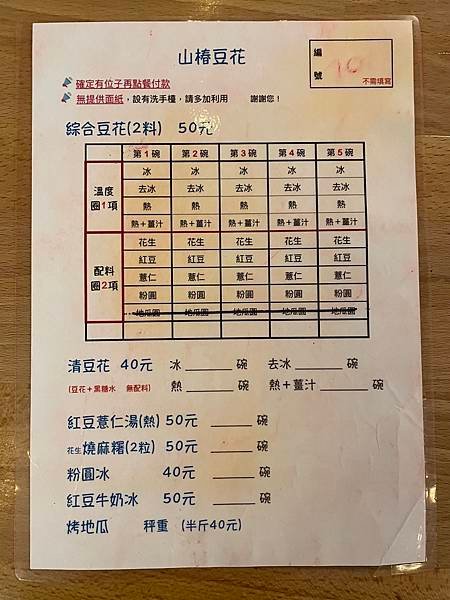 山椿豆花
編號 10
不需填寫
確定有位子再點餐付款
無提供面紙，設有洗手檯，請多加利用 謝謝您！
綜合豆花(2料) 50元
第1碗 第2碗 第3碗 第4碗 第5碗
溫度圈1項
冰 冰 冰 冰 冰
去冰 去冰 去冰 去冰 去冰
熱 熱 熱 熱 熱
熱+薑汁 熱+薑汁 熱+薑汁 熱+薑汁 熱+薑汁
配料圈2項
花生 花生 花生 花生 花生
紅豆 紅豆 紅豆 紅豆 紅豆
薏仁 薏仁 薏仁 薏仁 薏仁
粉圓 粉圓 粉圓 粉圓 粉圓
地瓜圓 地瓜圓 地瓜圓 地瓜圓 地瓜圓
清豆花 40元 冰______碗 去冰______碗
(豆花+黑糖水 無配料) 熱______碗 熱+薑汁______碗
紅豆薏仁湯(熱) 50元 _____碗
花生燒麻糬(2粒) 50元 _____碗
粉圓冰 40元 _____碗
紅豆牛奶冰 50元 _____碗
烤地瓜 秤重 (半斤40元)